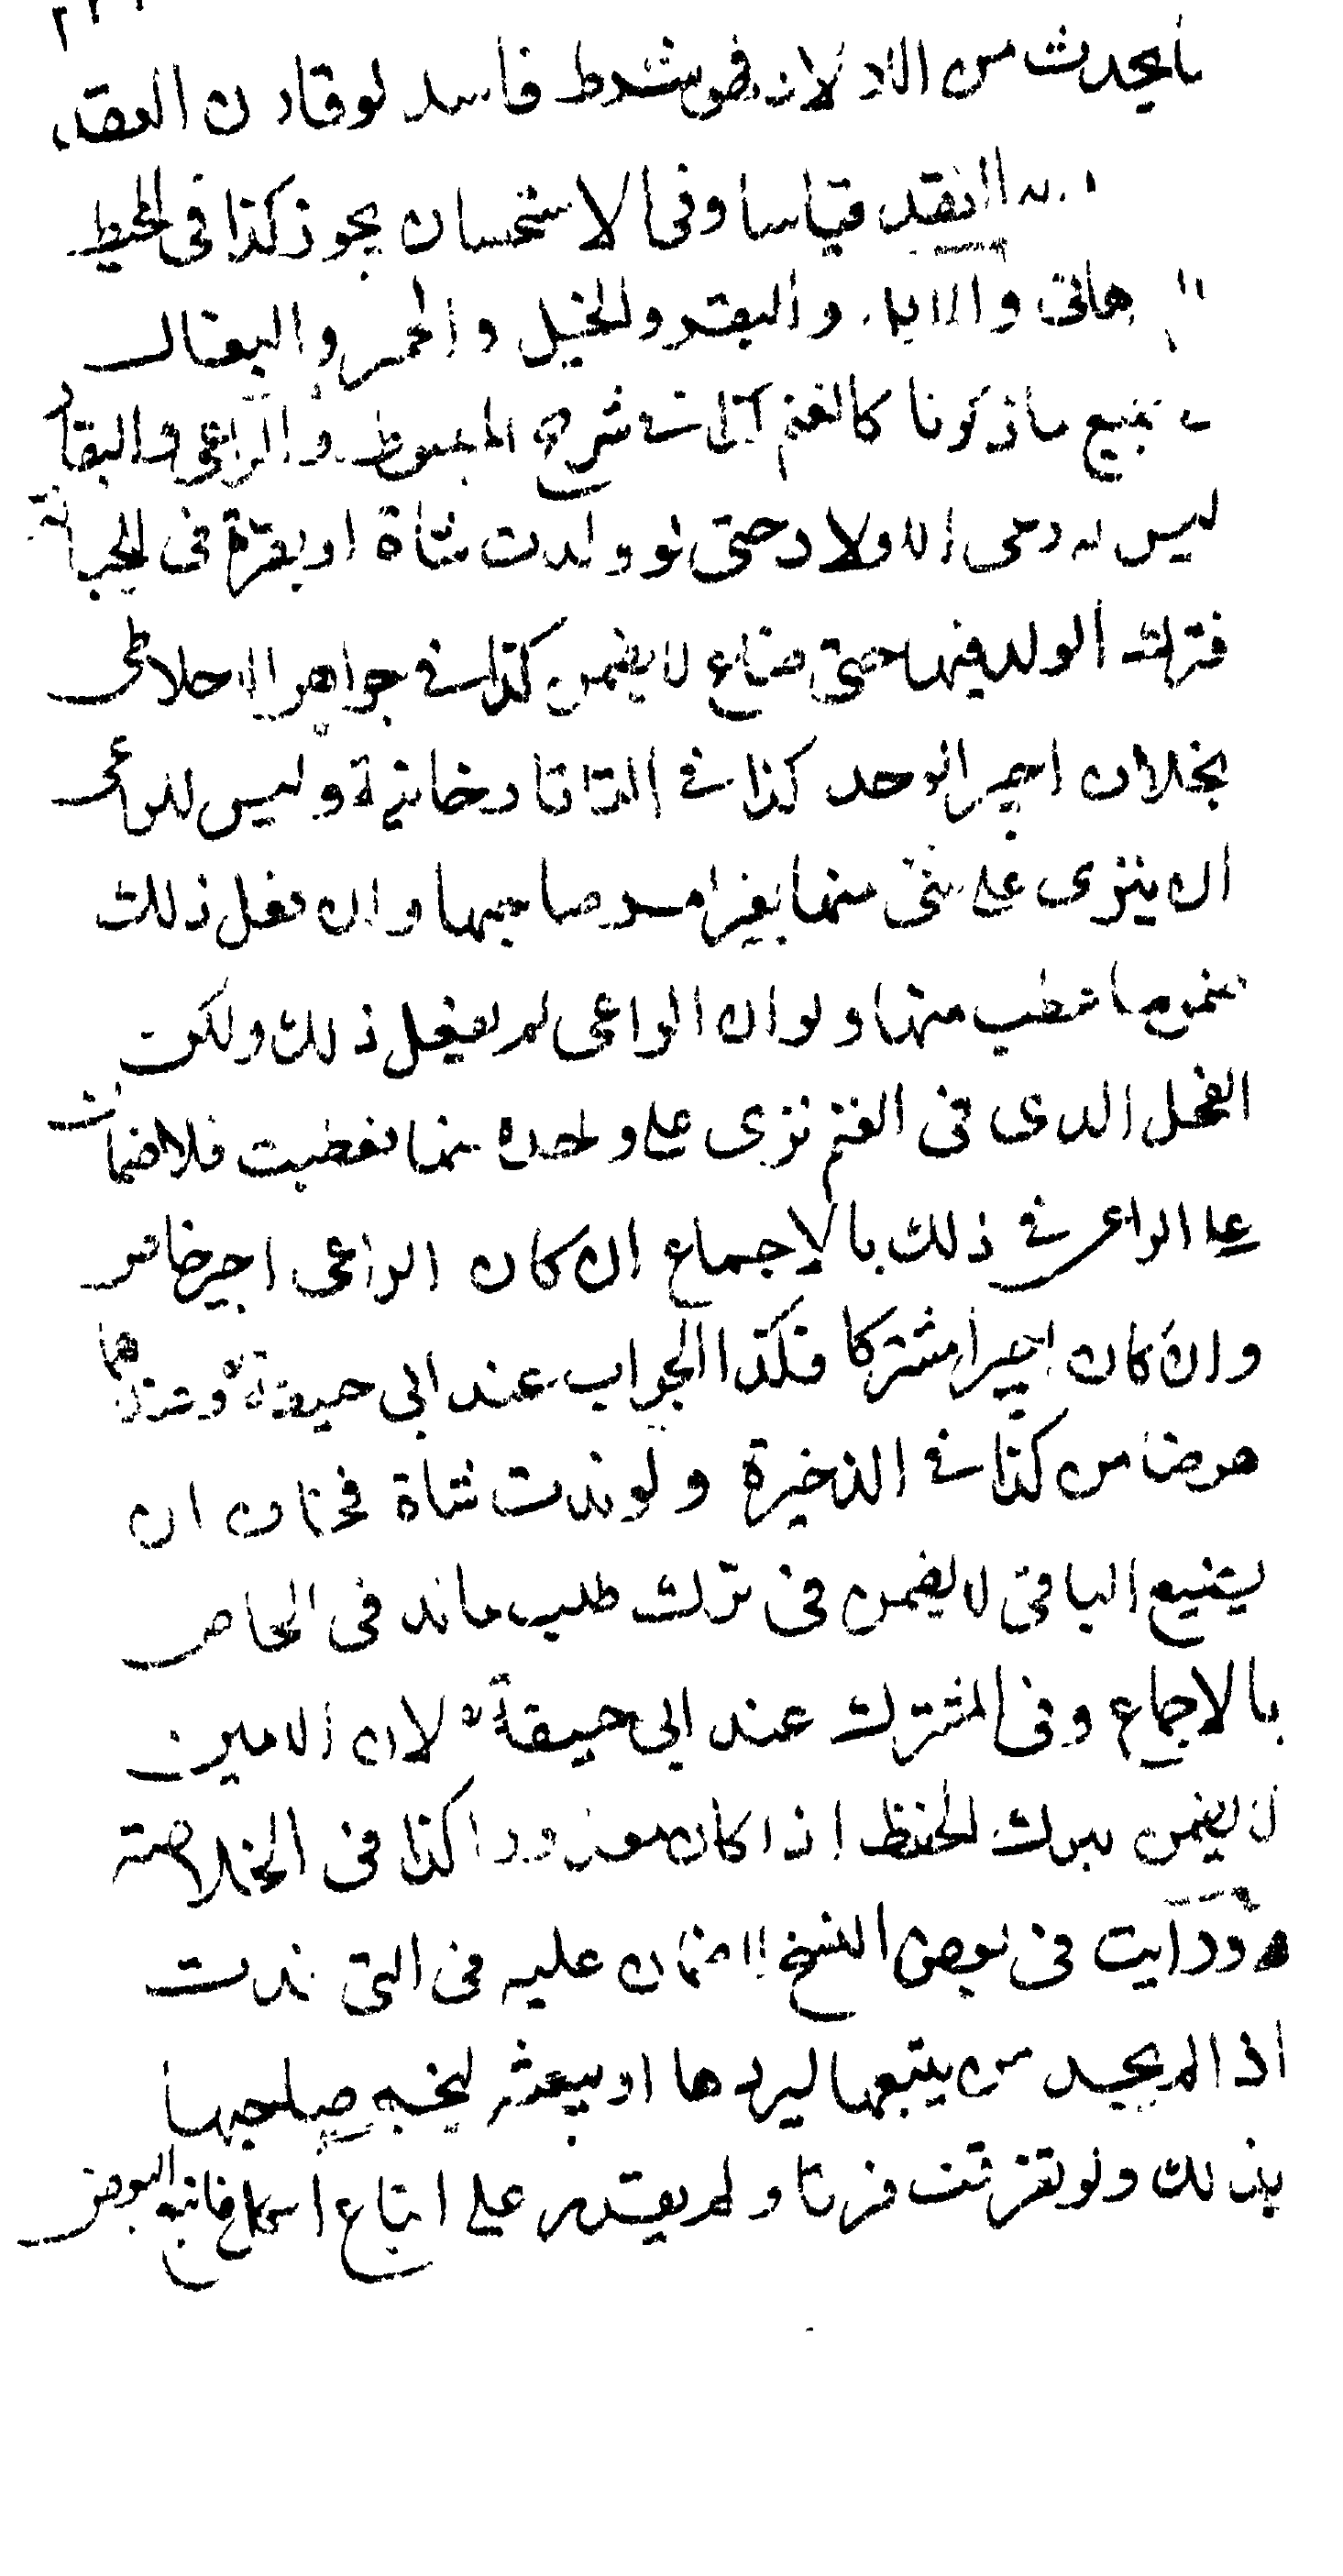 ما يحدث من الاولاد فهو شرط فاسد لو قارن العقد
العقد قياسا وفى الاستحسان يجوز كذا فى المحيط
والابل والبقر والخيل والحمير والبغال
جميع ما ذكرنا كالغنم كذا فى شرح المبسوط والراعى والبقار
ليس له رعى الاولاد حتى لو ولدت شاة او بقرة فى الجبانة
فترك الولد فيها حتى ضاع لا يضمن كذا فى جواهر الاخلاطى
بخلاف اجير الوحد كذا فى التتارخانية وليس للراعى
ان ينزى على شئ منها بغير امر صاحبها وان فعل ذلك
ضمن ما عطب منها ولو ان الراعى لم يفعل ذلك ولكن
الفحل الذى فى الغنم نزى على واحدة منها فعطبت فلا ضمان
على الراعى فى ذلك بالاجماع ان كان الراعى اجير خاص
وان كان اجيرا مشتركا فكذا الجواب عند ابى حنيفة وعندهما
هو ضامن كذا فى الذخيرة ولو ندت شاة فخاف ان
يضيع الباقى لا يضمن فى ترك طلب ما ند فى الخاص
بالاجماع وفى المشترك عند ابى حنيفة لان الامين
لا يضمن بترك الحفظ اذا كان معذورا كذا فى الخلاصة
ورأيت فى بعض النسخ لا ضمان عليه فى التى ندت
اذا لم يجد من يتبعها ليردها او يبعثه ليخبر صاحبها
بذلك ولو تفرقت فرقا ولم يقدر على اتباع الكل فاتبع البعض